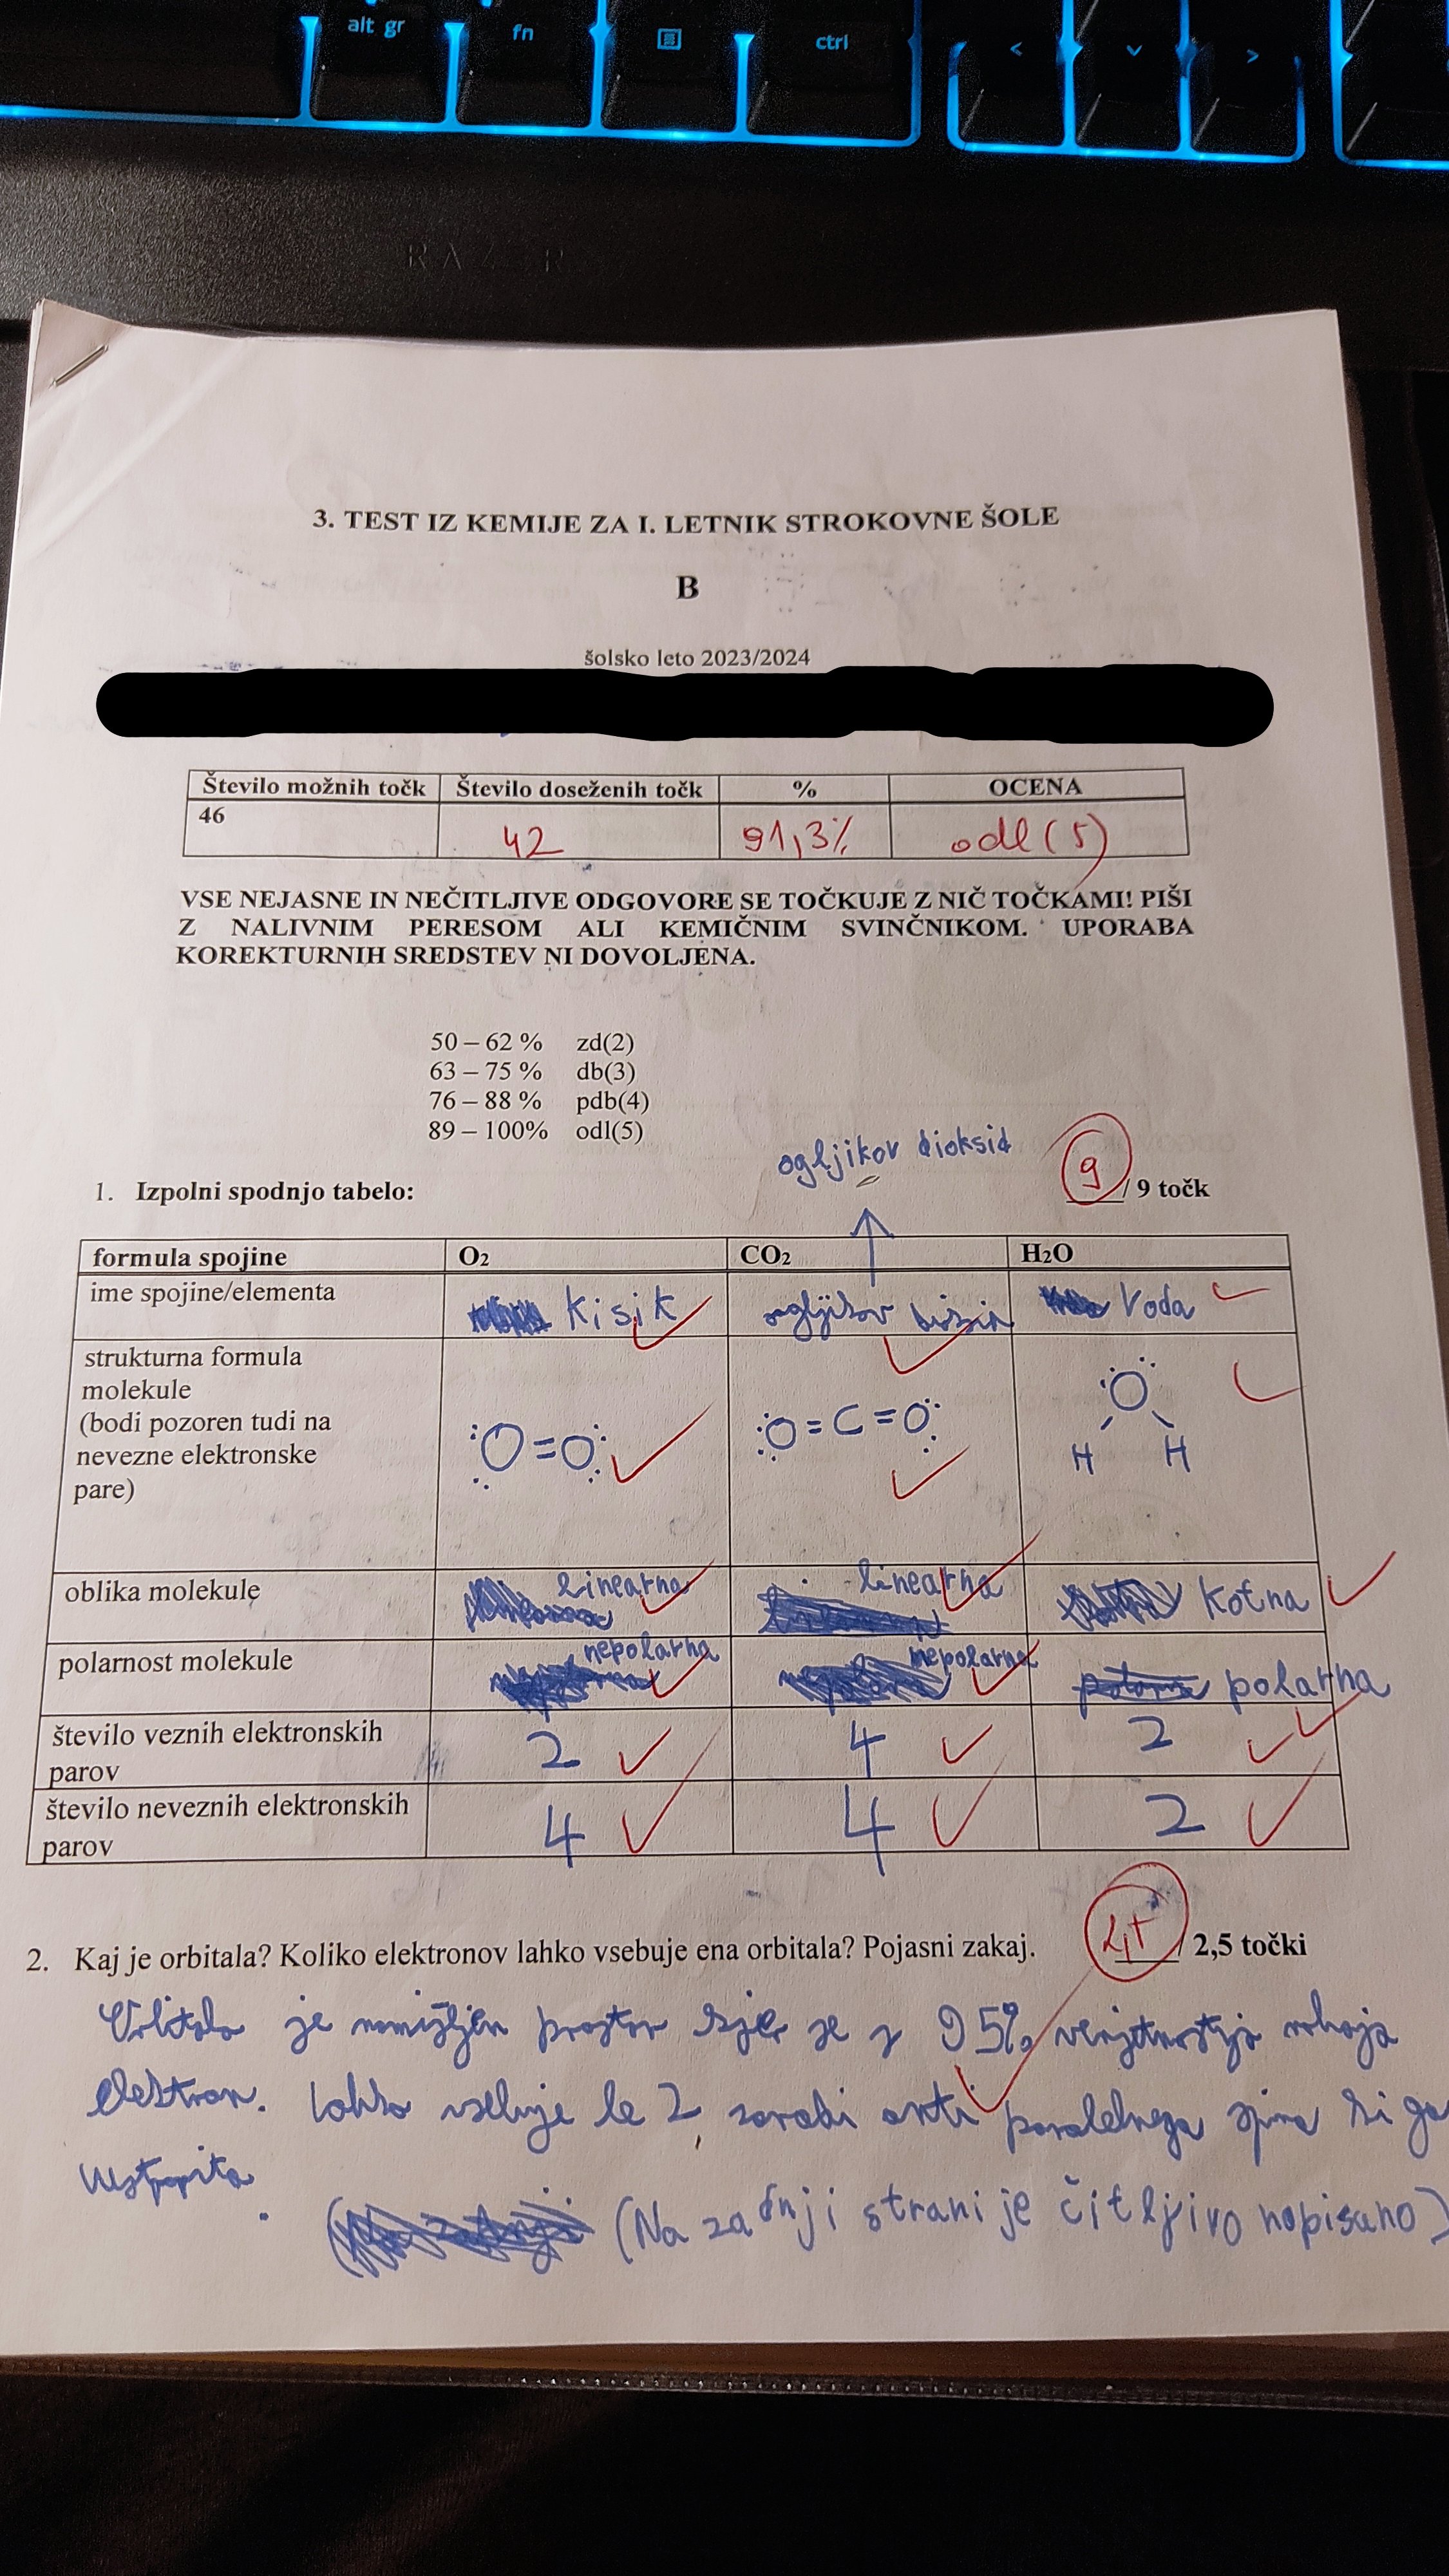 alt gr fn ctrl < >
RAZER
3. TEST IZ KEMIJE ZA I. LETNIK STROKOVNE ŠOLE
B
šolsko leto 2023/2024
Število možnih točk Število doseženih točk % OCENA
46 42 91,3% odl (5)
VSE NEJASNE IN NEČITLJIVE ODGOVORE SE TOČKUJE Z NIČ TOČKAMI! PIŠI
Z NALIVNIM PERESOM ALI KEMIČNIM SVINČNIKOM. UPORABA
KOREKTURNIH SREDSTEV NI DOVOLJENA.
50 – 62 % zd(2)
63 – 75 % db(3)
76 – 88 % pdb(4)
89 – 100% odl(5)
ogljikov dioksid
1. Izpolni spodnjo tabelo: 9 / 9 točk
formula spojine O₂ CO₂ H₂O
ime spojine/elementa Kisik ogljikov Voda
strukturna formula
molekule
(bodi pozoren tudi na
nevezne elektronske
pare)
O=O O=C=O O
H H
oblika molekule linearna linearna kotna
polarnost molekule nepolarna nepolarna polarna
število veznih elektronskih
parov 2 4 2
število neveznih elektronskih
parov 4 4 2
2. Kaj je orbitala? Koliko elektronov lahko vsebuje ena orbitala? Pojasni zakaj. / 2,5 točki
Orbitala je namišljen prostor kjer se z 95% verjetnostjo nahaja
elektron. Lahko vsebuje le 2, zaradi anti paralelnega spina ki ga
(Na zadnji strani je čitljivo napisano)